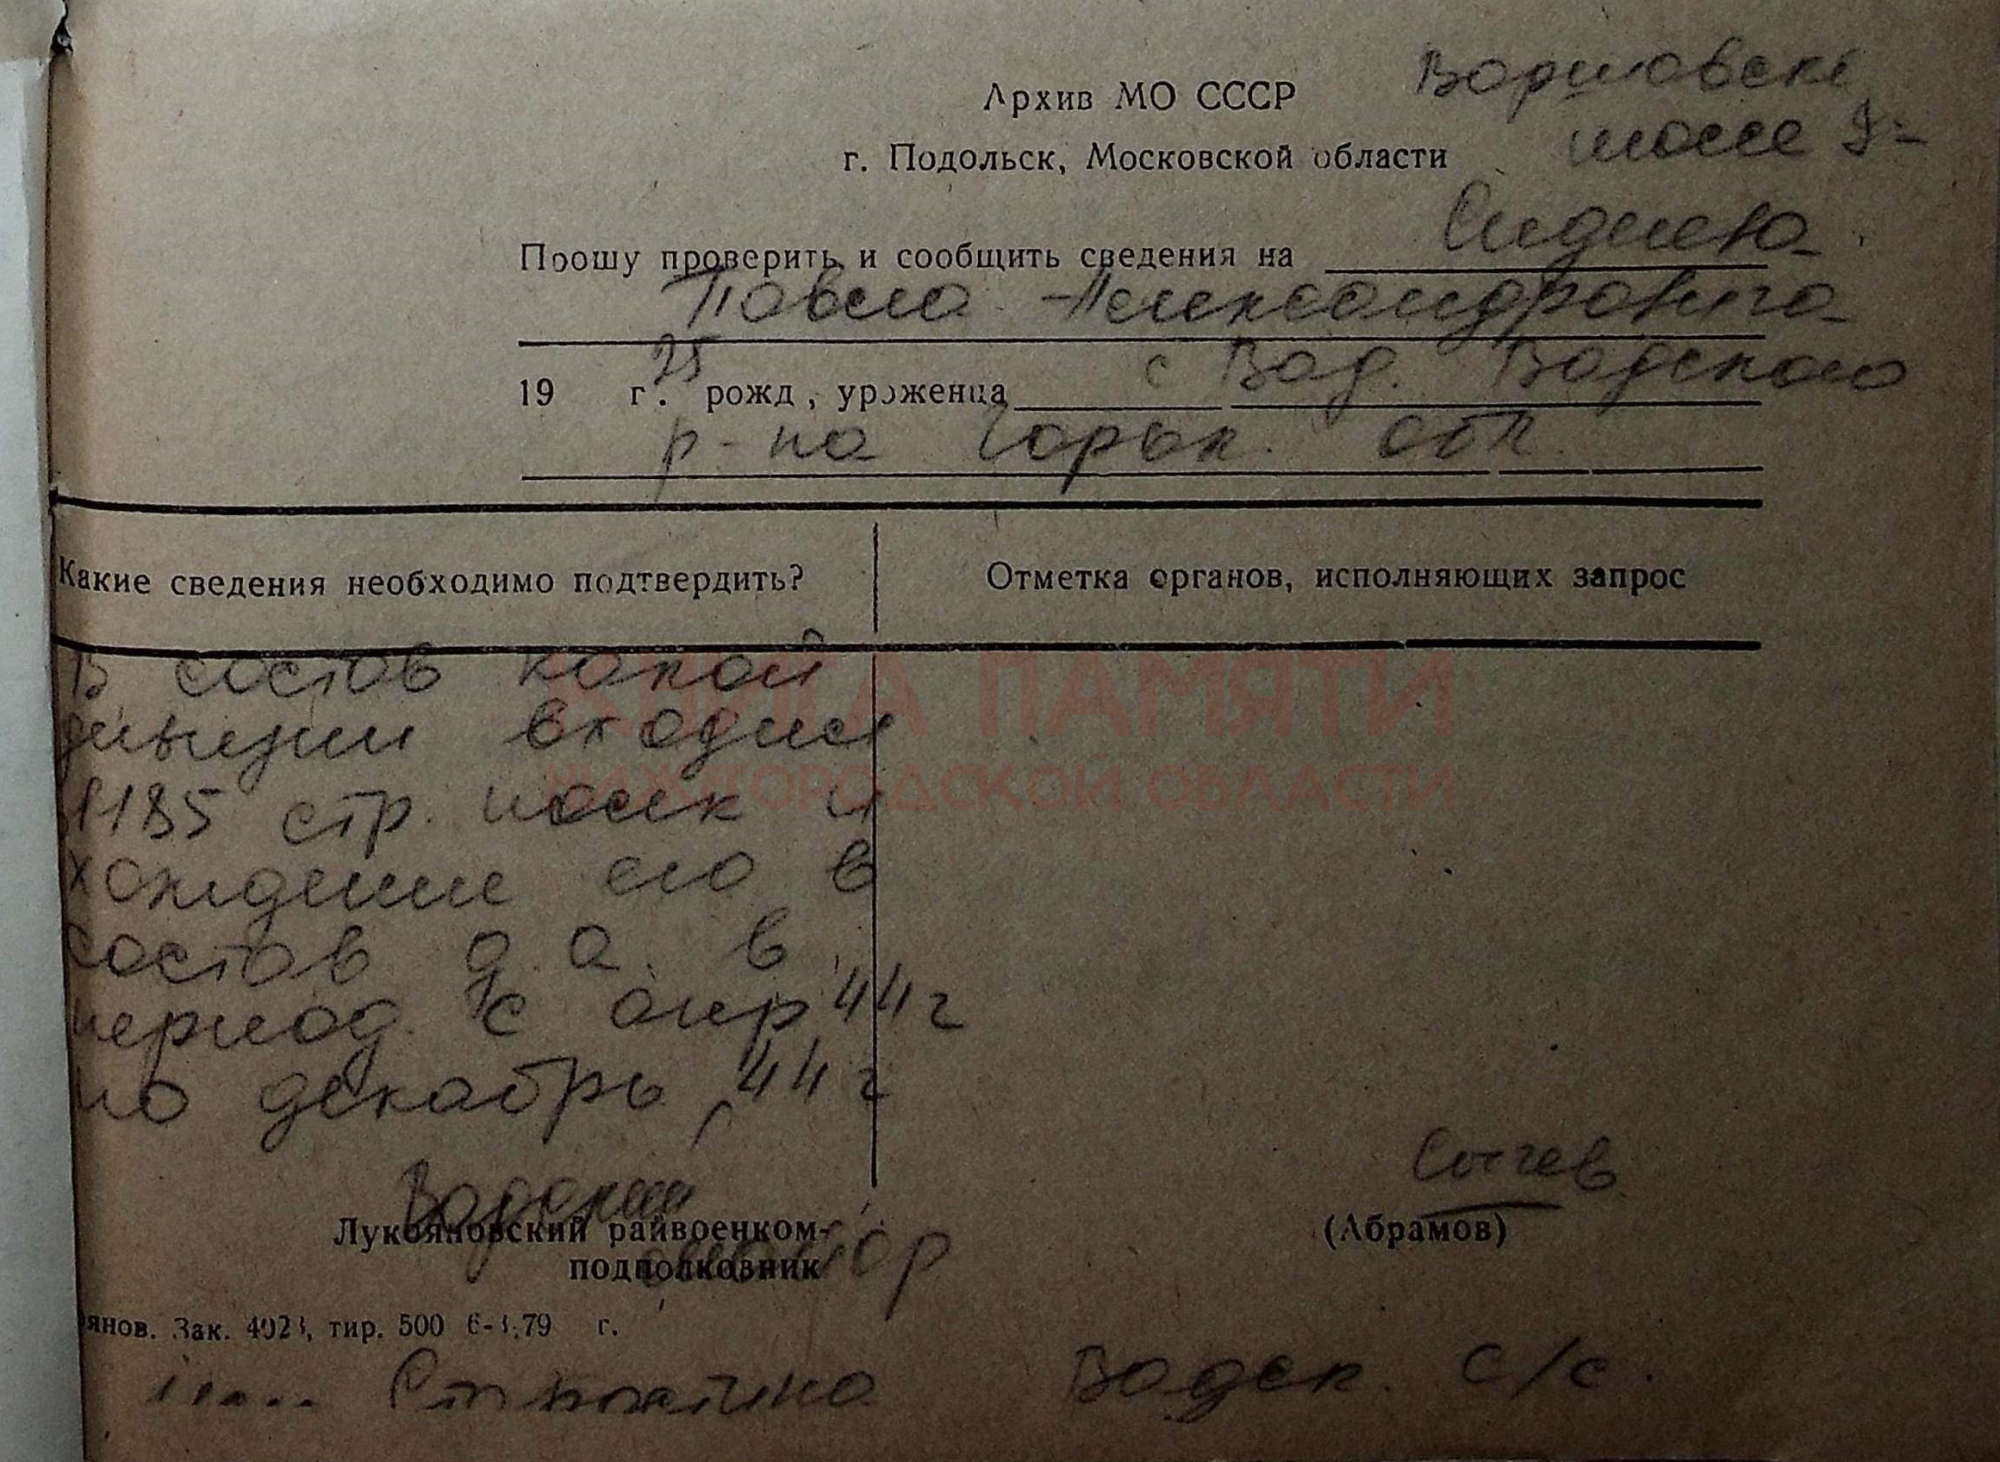 Архив МО СССР
Варшовске
шоссе 9
г. Подольск, Московской области
Прошу проверить и сообщить сведения на
Павла Александровича
1925 г. рожд, уроженца с Вад. Вадского
р-на Горьк. обл.
Какие сведения необходимо подтвердить? Отметка органов, исполняющих запрос
В состав какой
дивизии входил
1185 стр. полк и
хождение его в
состав д.а. в
период с апр 44г
по декабрь 44г
КНИГА ПАМЯТИ
НИЖЕГОРОДСКОЙ ОБЛАСТИ
Вадский Сычев
Лукояновский райвоенком- (Абрамов)
подполковник майор
янов. Зак. 4923, тир. 500 6- .79 г.
Вадск. с/с.